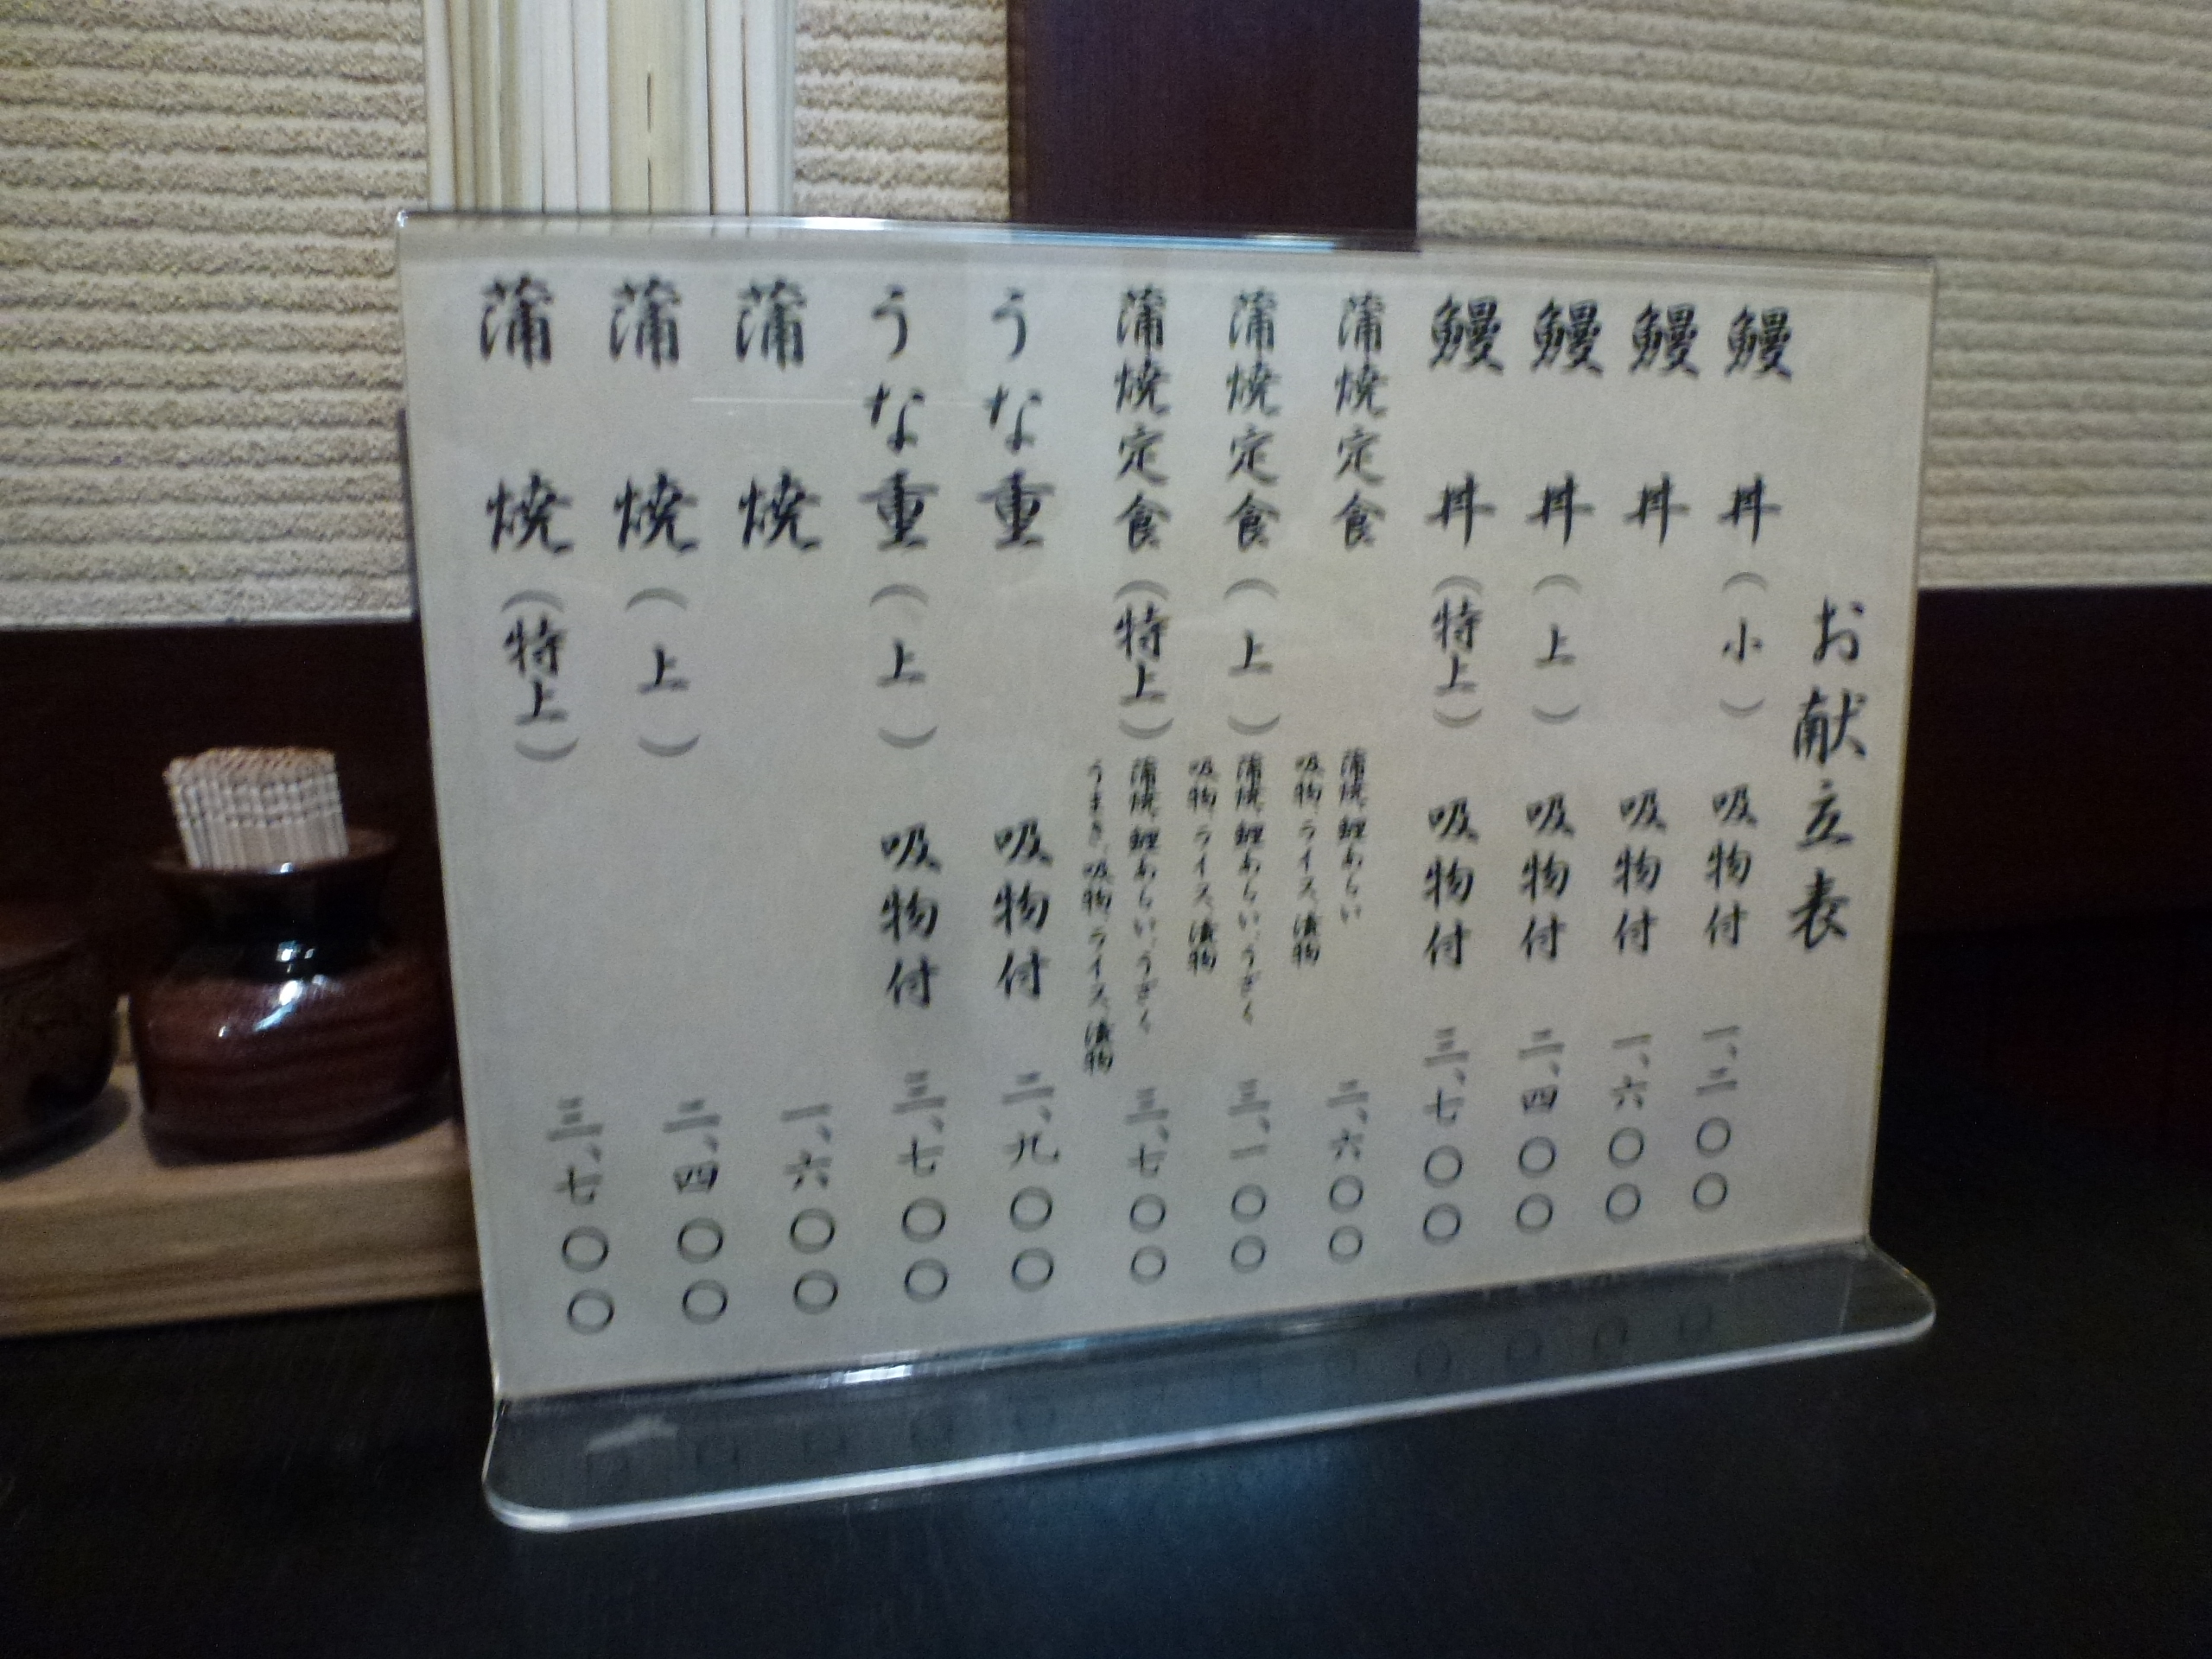 お献立表
鰻丼（小）吸物付 一、三〇〇
鰻丼 吸物付 一、六〇〇
鰻丼（上）吸物付 二、四〇〇
鰻丼（特上）吸物付 三、七〇〇
蒲焼定食 蒲焼、鯉あらい 二、六〇〇
吸物、ライス、漬物
蒲焼定食（上）蒲焼、鯉あらい、うざく 三、一〇〇
吸物、ライス、漬物
蒲焼定食（特上）蒲焼、鯉あらい、うざく 三、七〇〇
うまき、吸物、ライス、漬物
うな重 吸物付 二、九〇〇
うな重（上）吸物付 三、七〇〇
蒲焼 一、六〇〇
蒲焼（上） 二、四〇〇
蒲焼（特上） 三、七〇〇